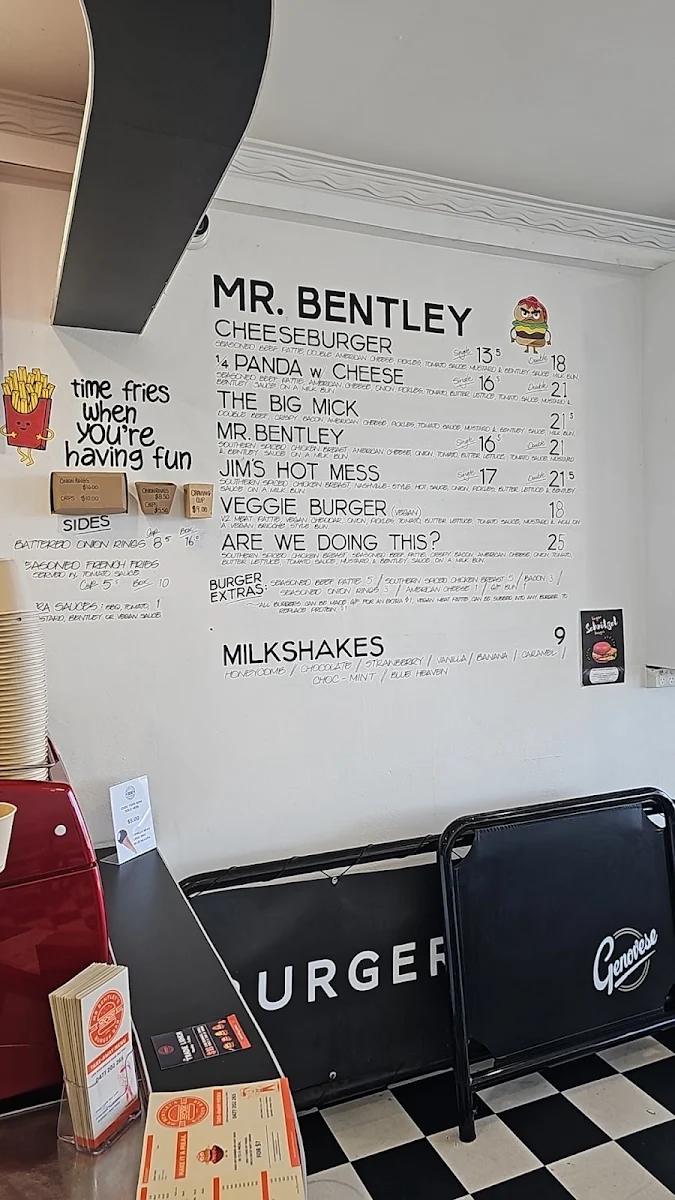 MR. BENTLEY
CHEESEBURGER Single 13.5 Double 18
SEASONED BEEF PATTIE, DOUBLE AMERICAN CHEESE, PICKLES, TOMATO SAUCE, MUSTARD & BENTLEY SAUCE MILK BUN
1/4 PANDA w CHEESE Single 16.5 Double 21
SEASONED BEEF PATTIE, AMERICAN CHEESE, ONION, PICKLES, TOMATO, BUTTER LETTUCE, TOMATO SAUCE, MUSTARD &
BENTLEY SAUCE ON A MILK BUN
THE BIG MICK 21.5
DOUBLE BEEF, CRISPY BACON, AMERICAN CHEESE, PICKLES, TOMATO SAUCE, MUSTARD & BENTLEY SAUCE MILK BUN
MR. BENTLEY Single 16.5 Double 21
SOUTHERN SPICED CHICKEN BREAST, AMERICAN CHEESE, ONION, PICKLES, TOMATO, BUTTER LETTUCE, TOMATO SAUCE, MUSTARD
& BENTLEY SAUCE ON A MILK BUN
JIM'S HOT MESS Single 17 Double 21.5
SOUTHERN SPICED CHICKEN BREAST, NASHVILLE-STYLE HOT SAUCE, ONION, PICKLES, BUTTER LETTUCE & BENTLEY
SAUCE ON A MILK BUN
VEGGIE BURGER (VEGAN) 18
V2 MEAT PATTIE, VEGAN CHEDDAR, ONION, PICKLES, TOMATO, BUTTER LETTUCE, TOMATO SAUCE, MUSTARD & AIOLI ON
A VEGAN BRIOCHE STYLE BUN
ARE WE DOING THIS? 25
SOUTHERN SPICED CHICKEN BREAST, SEASONED BEEF PATTIE, CRISPY BACON, AMERICAN CHEESE, ONION, TOMATO,
BUTTER LETTUCE, TOMATO SAUCE, MUSTARD & BENTLEY SAUCE ON A MILK BUN
BURGER EXTRAS: SEASONED BEEF PATTIE 5 / SOUTHERN SPICED CHICKEN BREAST 5 / BACON 3 /
SEASONED ONION RINGS 3 / AMERICAN CHEESE 1 / GF BUN 1
ALL BURGERS CAN BE MADE GF FOR AN EXTRA $1, VEGAN MEAT PATTIE CAN BE SUBBED INTO ANY BURGER TO
REPLACE PROTEIN $1
MILKSHAKES 9
HONEYCOMB / CHOCOLATE / STRAWBERRY / VANILLA / BANANA / CARAMEL /
CHOC-MINT / BLUE HEAVEN
time fries
when
you're
having fun
ONION RINGS
$16.00
CHIPS $10.00
ONION RINGS
$8.50
CHIPS $5.50
CRAVING
CUP
$9.00
SIDES
BATTERED ONION RINGS Cup 8.5 Box 16.5
SEASONED FRENCH FRIES
SERVED W. TOMATO SAUCE
CUP 5.5 BOX 10
RA SAUCES: BBQ, TOMATO, 1
STARD, BENTLEY OR VEGAN SAUCE
Schnitzel
$5.00
URGER
Genovese
MR BENTLEY'S
BURGER BAR
TAKE-AWAY MENU
0477 202 265
MAKE IT A MEAL
FOR $7
0477 202 265